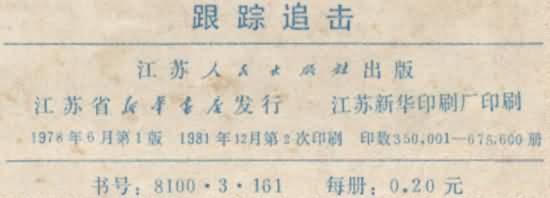 跟踪追击
江苏人民出版社出版
江苏省新华书店发行 江苏新华印刷厂印刷
1978年6月第1版 1981年12月第2次印刷 印数350,001—675,600册
书号：8100·3·161 每册：0.20元